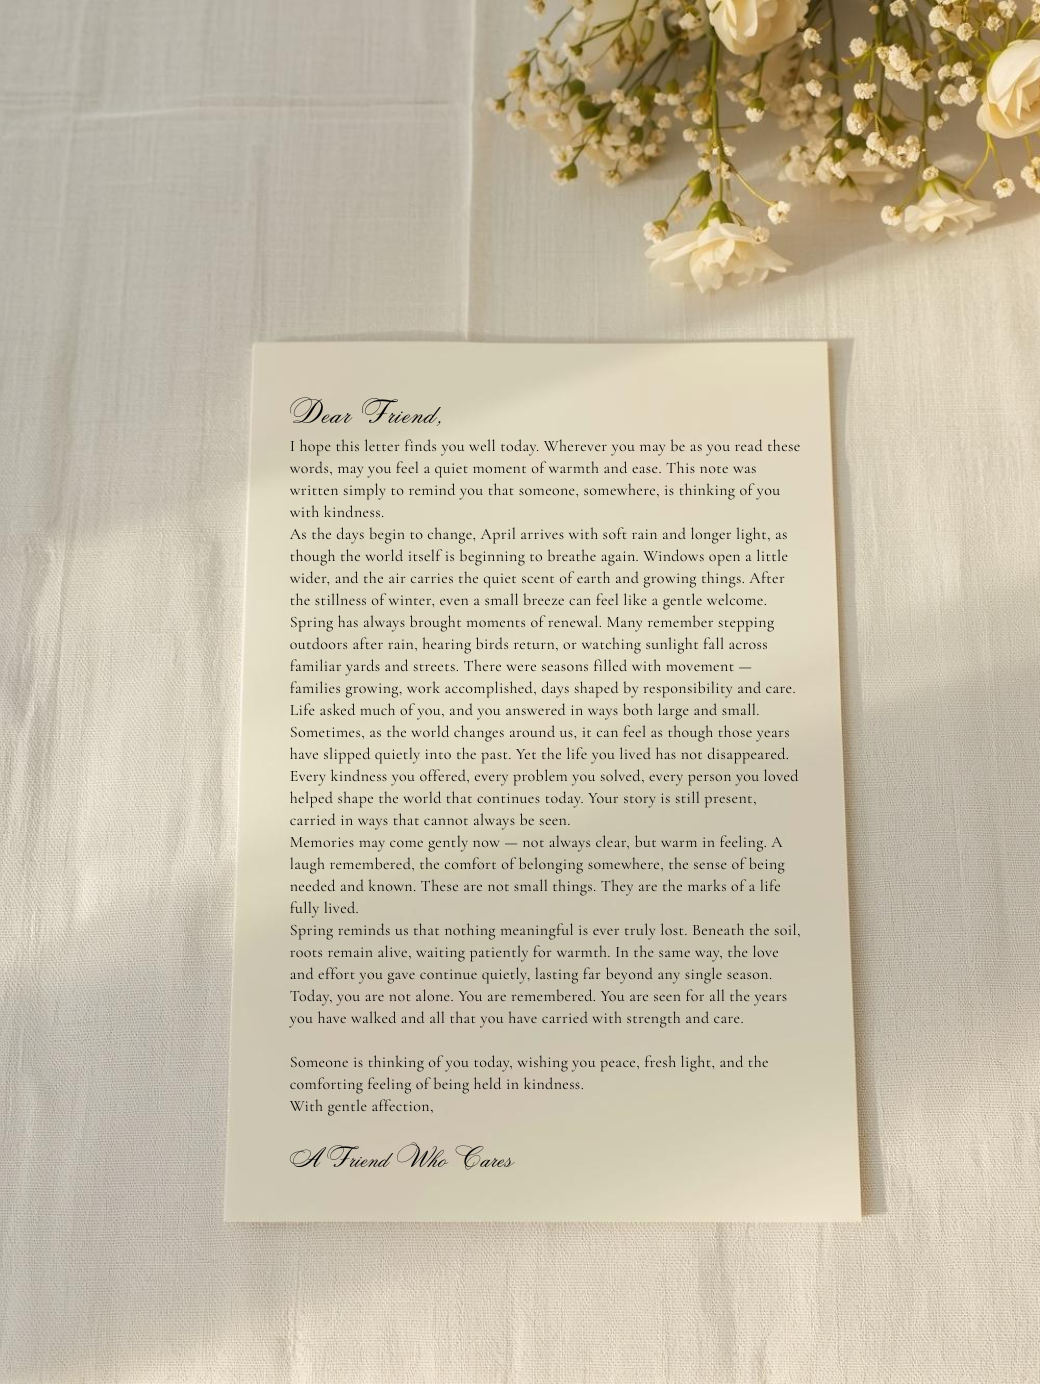 Dear Friend,
I hope this letter finds you well today. Wherever you may be as you read these
words, may you feel a quiet moment of warmth and ease. This note was
written simply to remind you that someone, somewhere, is thinking of you
with kindness.
As the days begin to change, April arrives with soft rain and longer light, as
though the world itself is beginning to breathe again. Windows open a little
wider, and the air carries the quiet scent of earth and growing things. After
the stillness of winter, even a small breeze can feel like a gentle welcome.
Spring has always brought moments of renewal. Many remember stepping
outdoors after rain, hearing birds return, or watching sunlight fall across
familiar yards and streets. There were seasons filled with movement —
families growing, work accomplished, days shaped by responsibility and care.
Life asked much of you, and you answered in ways both large and small.
Sometimes, as the world changes around us, it can feel as though those years
have slipped quietly into the past. Yet the life you lived has not disappeared.
Every kindness you offered, every problem you solved, every person you loved
helped shape the world that continues today. Your story is still present,
carried in ways that cannot always be seen.
Memories may come gently now — not always clear, but warm in feeling. A
laugh remembered, the comfort of belonging somewhere, the sense of being
needed and known. These are not small things. They are the marks of a life
fully lived.
Spring reminds us that nothing meaningful is ever truly lost. Beneath the soil,
roots remain alive, waiting patiently for warmth. In the same way, the love
and effort you gave continue quietly, lasting far beyond any single season.
Today, you are not alone. You are remembered. You are seen for all the years
you have walked and all that you have carried with strength and care.
Someone is thinking of you today, wishing you peace, fresh light, and the
comforting feeling of being held in kindness.
With gentle affection,
A Friend Who Cares